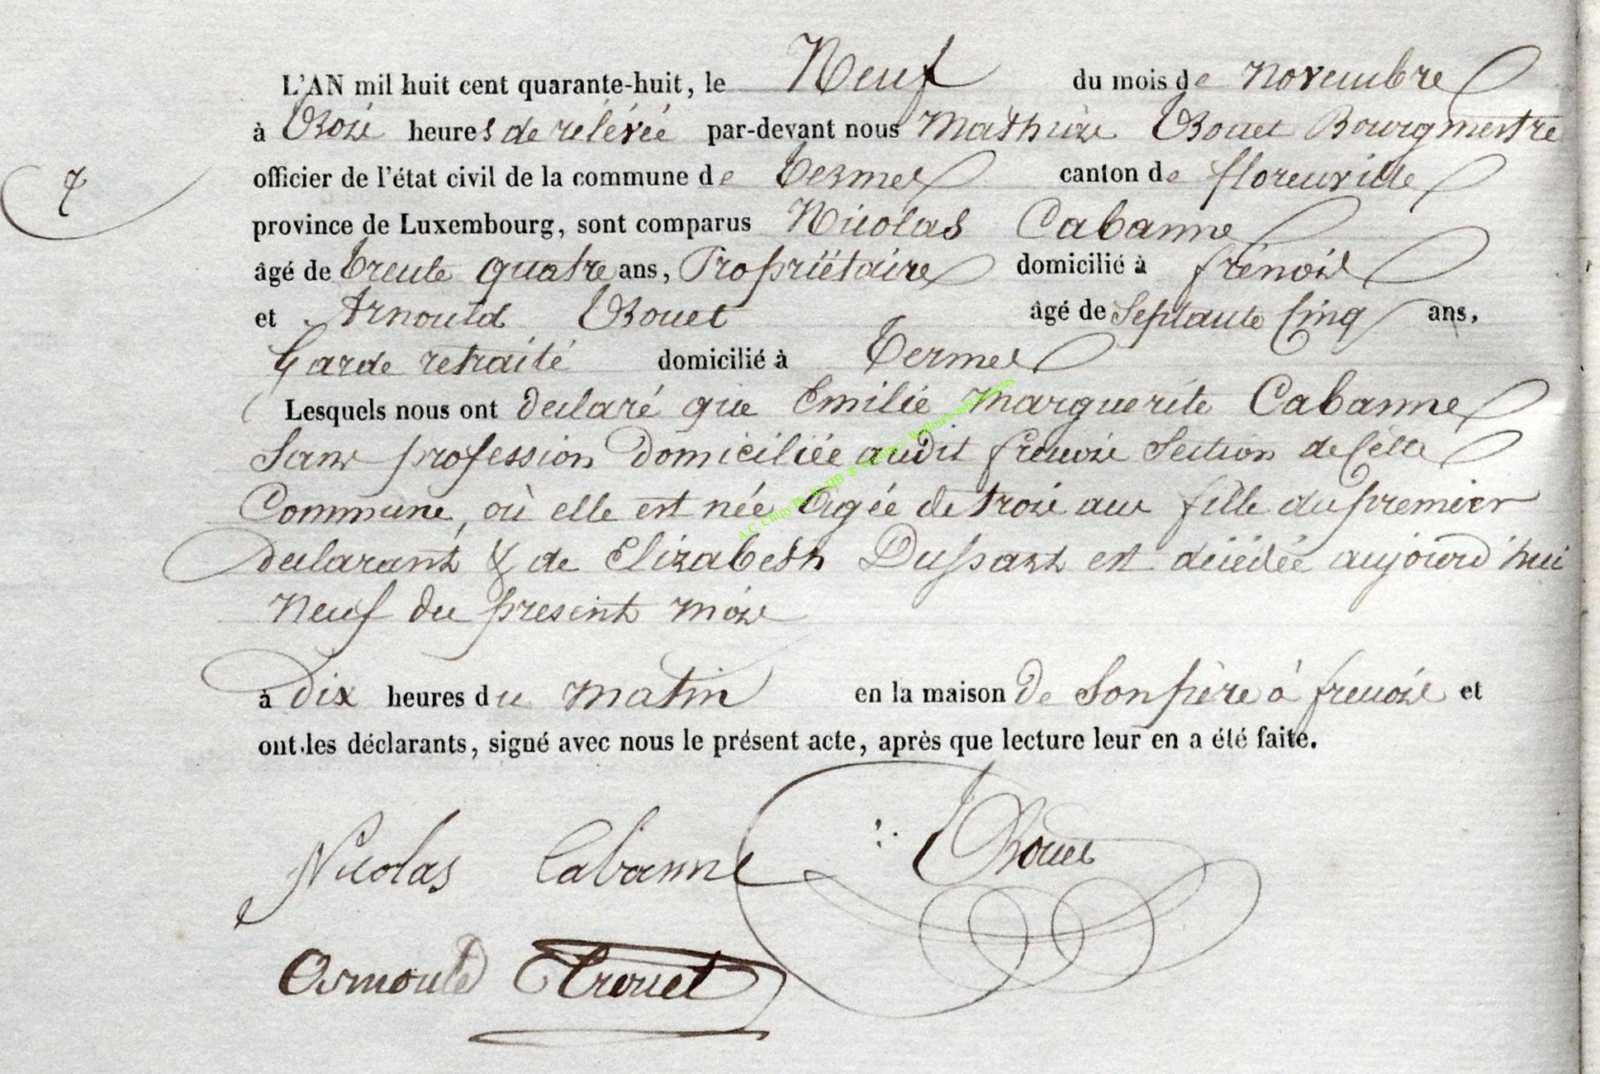 L'AN mil huit cent quarante-huit, le Neuf du mois de novembre
à trois heures de rélévée par-devant nous Mathieu Bourgmestre
officier de l'état civil de la commune de Termes canton de florenville
province de Luxembourg, sont comparus Nicolas Cabanne
âgé de trente quatre ans, Propriétaire domicilié à frénois
et Arnould âgé de Septante Cinq ans,
Garde retraité domicilié à Termes
7
Lesquels nous ont declaré que Emilie Marguerite Cabanne
Sans profession Domiciliée audit frenois Section de Cette
Commune, où elle est née Agée de trois ans fille du premier
declarant & de Elizabeth est décédée aujourd'hui
neuf du present mois
à dix heures du matin en la maison De Son père à frenois et
ont les déclarants, signé avec nous le présent acte, après que lecture leur en a été faite.
Nicolas Cabanne